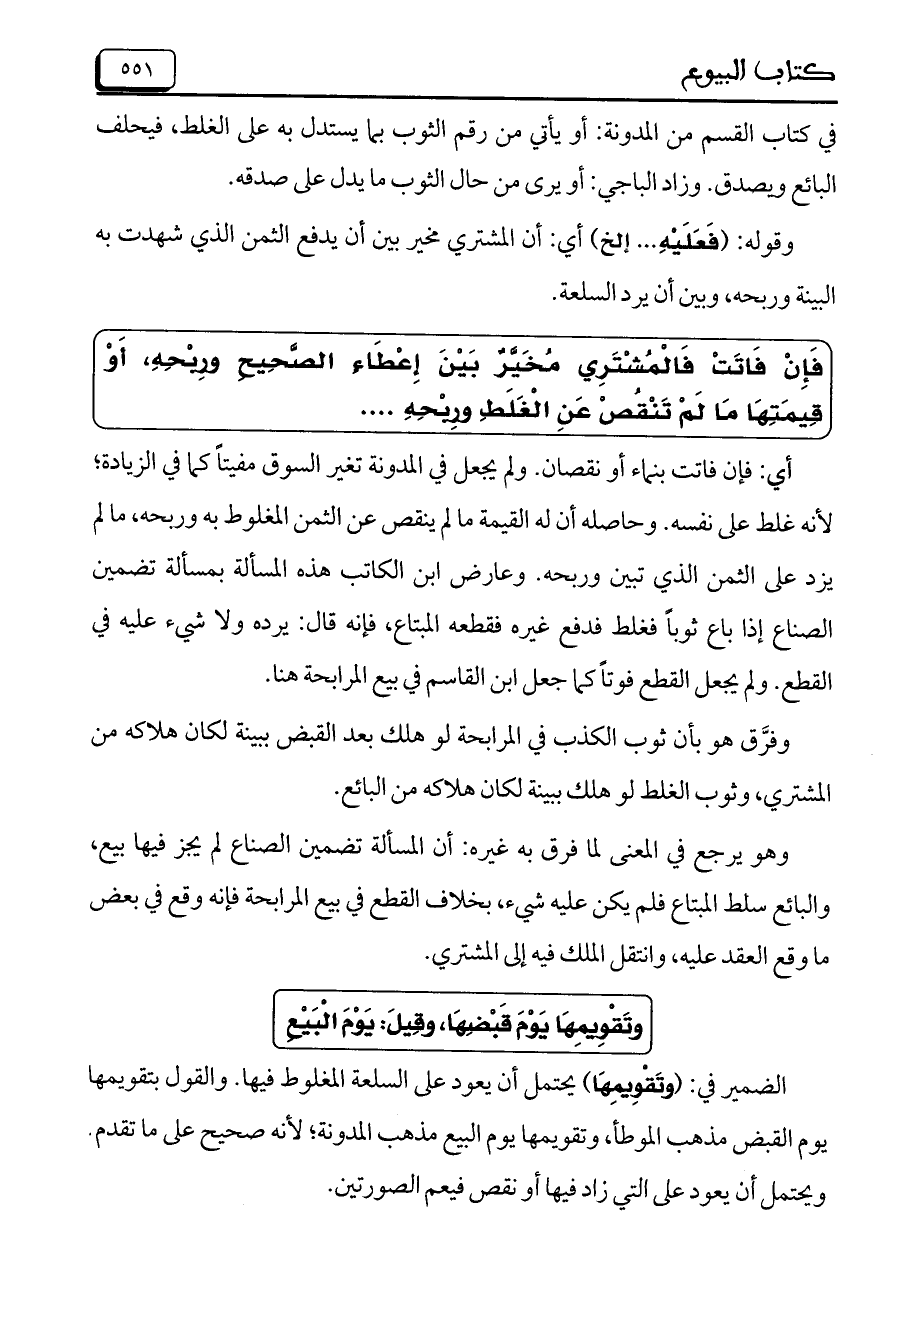 كتاب البيوع
٥٥١
في كتاب القسم من المدونة: أو يأتي من رقم الثوب بما يستدل به على الغلط، فيحلف
البائع ويصدق. وزاد الباجي: أو يرى من حال الثوب ما يدل على صدقه.
وقوله: (فَعَلَيْهِ... إلخ) أي: أن المشتري مخير بين أن يدفع الثمن الذي شهدت به
البينة وربحه، وبين أن يرد السلعة.
فَإِنْ فَاتَتْ فَالْمُشْتَرِي مُخَيَّرٌ بَيْنَ إِعْطَاءِ الصَّحِيحِ ورِبْحِهِ، أَوْ
قِيمَتِهَا مَا لَمْ تَنْقُصْ عَنِ الْغَلَطِ ورِبْحِهِ ....
أي: فإن فاتت بنماء أو نقصان. ولم يجعل في المدونة تغير السوق مفيتاً كما في الزيادة؛
لأنه غلط على نفسه. وحاصله أن له القيمة ما لم ينقص عن الثمن المغلوط به وربحه، ما لم
يزد على الثمن الذي تبين وربحه. وعارض ابن الكاتب هذه المسألة بمسألة تضمين
الصناع إذا باع ثوباً فغلط فدفع غيره فقطعه المبتاع، فإنه قال: يرده ولا شيء عليه في
القطع. ولم يجعل القطع فوتاً كما جعل ابن القاسم في بيع المرابحة هنا.
وفرَّق هو بأن ثوب الكذب في المرابحة لو هلك بعد القبض ببينة لكان هلاكه من
المشتري، وثوب الغلط لو هلك ببينة لكان هلاكه من البائع.
وهو يرجع في المعنى لما فرق به غيره: أن المسألة تضمين الصناع لم يجز فيها بيع،
والبائع سلط المبتاع فلم يكن عليه شيء، بخلاف القطع في بيع المرابحة فإنه وقع في بعض
ما وقع العقد عليه، وانتقل الملك فيه إلى المشتري.
وتَقْوِيمِهَا يَوْمَ قَبْضِهَا، وقِيلَ: يَوْمَ الْبَيْعِ
الضمير في: (وتَقْوِيمِهَا) يحتمل أن يعود على السلعة المغلوط فيها. والقول بتقويمها
يوم القبض مذهب الموطأ، وتقويمها يوم البيع مذهب المدونة؛ لأنه صحيح على ما تقدم.
ويحتمل أن يعود على التي زاد فيها أو نقص فيعم الصورتين.